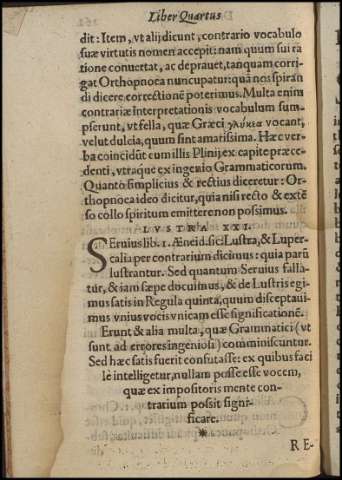 Liber Quartus
dit: Item, vt alij dicunt, contrario vocabulo
suæ virtutis nomen accepit: nam quum sui ra
tione conuertat, ac deprauet, tanquam corri-
gat Orthopnoea nuncupatur: quã nos spiran
di dicere correctionẽ poterimus. Multa enim
contrariæ interpretationis vocabulum sum-
pserunt, vt fella, quæ Græci γλύκεα vocant,
velut dulcia, quum sint amarissima. Hæc ver-
ba coincidũt cum illis Plinij, ex capite præce-
denti, vtraque ex ingenio Grammaticorum.
Quanto simplicius & rectius diceretur: Or-
thopnoea ideo dicitur, quia nisi recto & extẽ
so collo spiritum emittere non possimus.
LVSTRA XXI.
Seruius lib. 1. Æneid. sic: Lustra, & Luper-
calia per contrarium dicimus: quia parũ
lustrantur. Sed quantum Seruius falla-
tur, & iam sæpe docuimus, & de Lustris egi-
mus satis in Regula quinta, quum disceptaui-
mus vnius vocis vnicam esse significationẽ.
Erunt & alia multa, quæ Grammatici (vt
sunt ad errores ingeniosi) comminiscuntur.
Sed hæc satis fuerit confutasse: ex quibus faci
lè intelligetur, nullam posse esse vocem,
quæ ex impositoris mente con-
trarium possit signi-
ficare.
*
RE-